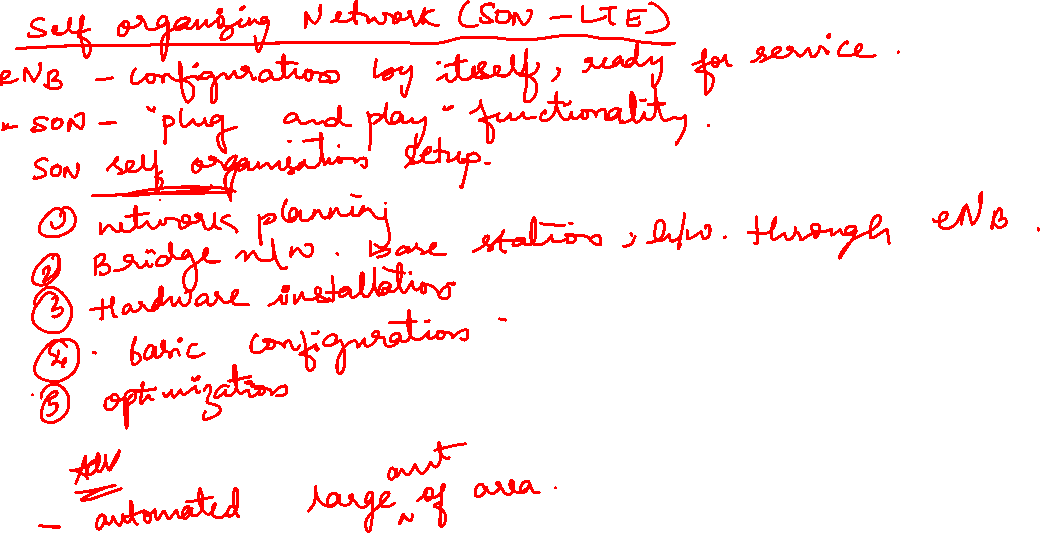 Self organizing Network (SON - LTE)
eNB - configuration by itself, ready for service.
- SON - "plug and play" functionality.
SON self organisation setup.
① network planning
② Bridge n/w. Base station, h/w. through eNB.
③ Hardware installation
④ basic configuration
⑤ optimization
Adv
- automated large amt of area.